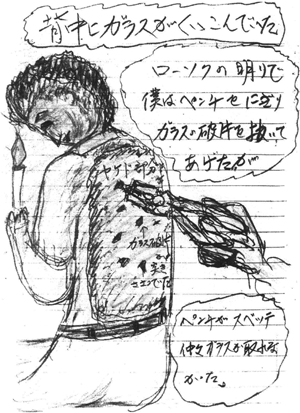 背中にガラスがくいこんでいた
ローソクの明りで
僕はペンチをにぎり
ガラスの破片を抜いて
あげたが
ヤケド部分
ガラス破片
ペンチがスベッテ
仲々ガラスが取れな
かった。